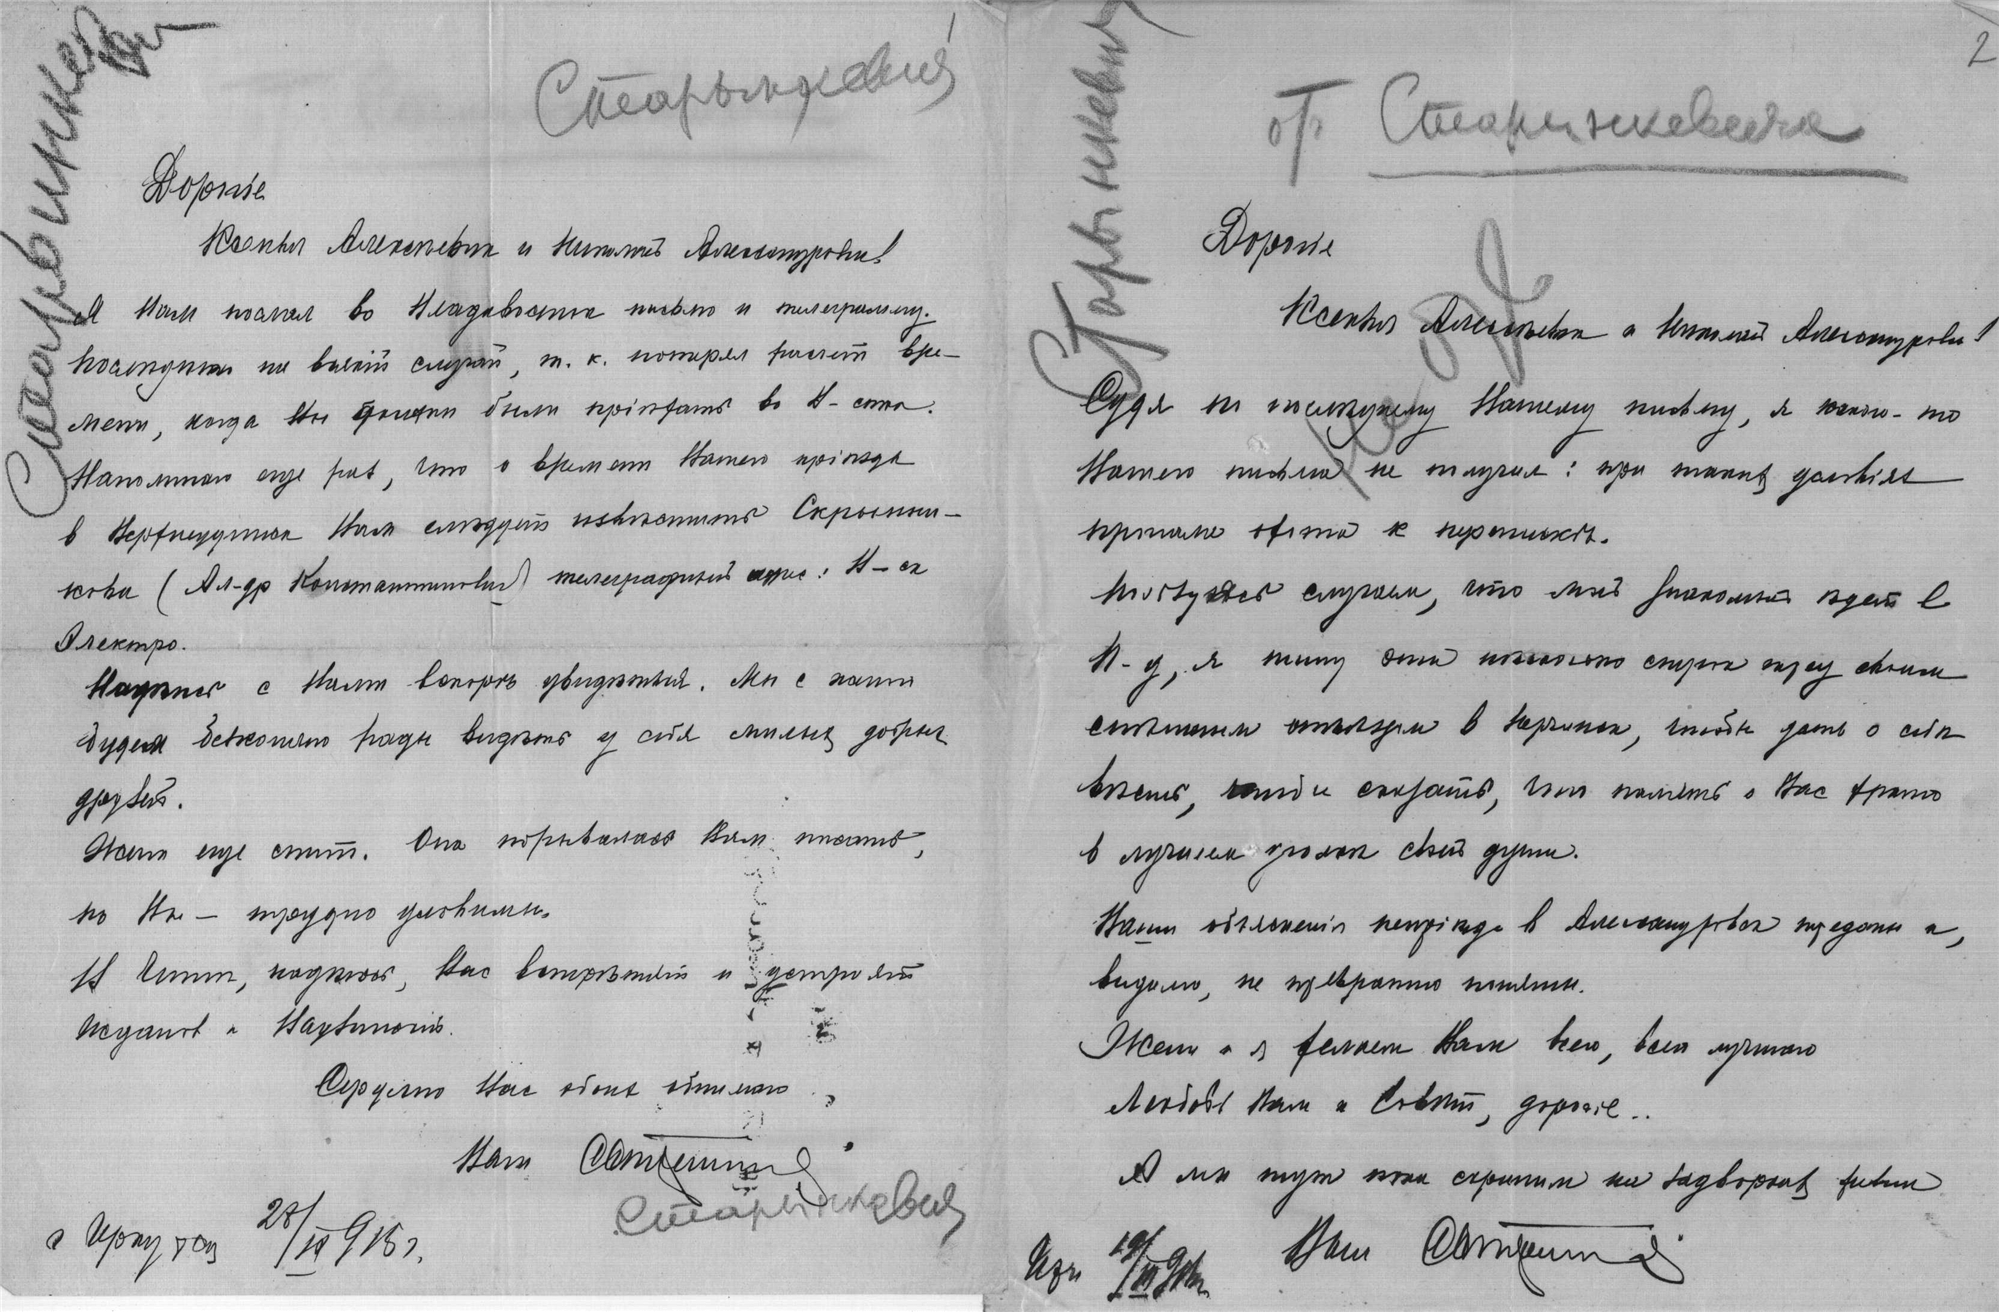 1
Старынкевич
Старынкевич
Дорогіе
Ксенія Алексѣевна и Николай Александровичъ!
Я Вам послал во Владивосток письмо и телеграмму.
Последнюю на всякій случай, т. к. потерял расчет вре-
мени, когда Вы должны были пріѣхать во В-сток.
Напоминаю еще раз, что о времени Вашего пріѣзда
в Верхнеудинск Вам слѣдует извѣстить Скропыш-
кова (Ал-др Константинович) телеграфный адрес: В-ск
Электро.
Надѣюсь с Вами вскорѣ увидѣться. Мы с женой
будем безконечно рады видѣть у себя милых, добрых
друзей.
Жена еще спит. Она порывалась Вам писать,
но Вы – трудно уловимы.
В Читѣ, надѣюсь, Вас встрѣтят и устроят
Жданов и Надѣинскій.
Сердечно Вас обоих обнимаю
Ваш
Старынкевич
г Иркутск 28/IX 915 г.
2
Старынкевич
от Старынкевича
Дорогіе
Ксенія Алексѣевна и Николай Александрович!
Судя по послѣднему Вашему письму, я какого-то
Вашего письма не получил: при таких условіях
пропала охота к перепискѣ.
Пользуясь случаем, что мой знакомый ѣдет в
В-д, я пишу эти нѣсколько строк перед своим
спѣшным отъѣздом в Нерчинск, чтобы дать о себѣ
вѣсть, чтобы сказать, что память о Вас храню
в лучшем уголкѣ своей души.
Ваши объясненія непріѣзда в Александровск переданы и,
видимо, не превратно поняты.
Жена и я желаем Вам всего, всего лучшаго
Любовь Вам и Совѣт, дорогіе..
А мы тут пока скрипим на задворках жизни
Ваш
Ирк